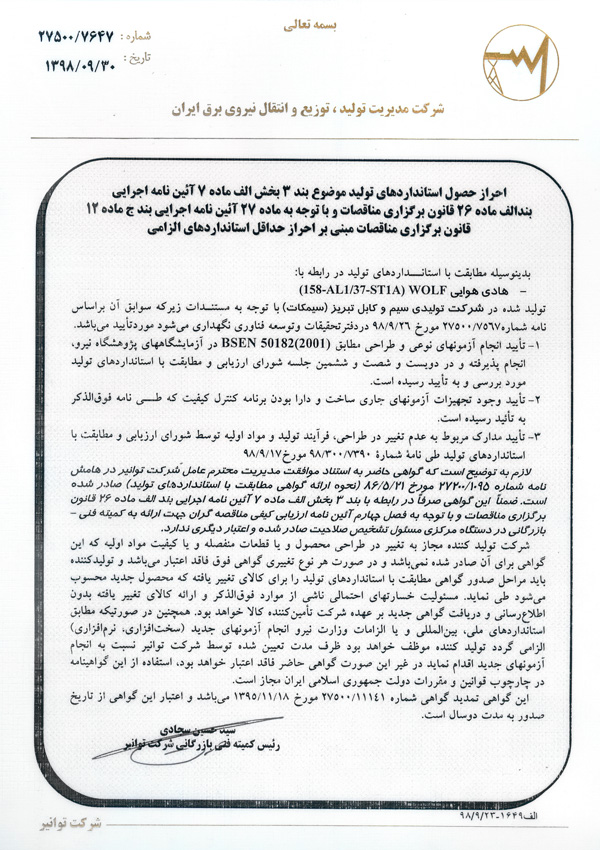 بسمه تعالی
شماره : ۲۷۵۰۰/۷۶۴۷
تاریخ : ۱۳۹۸/۰۹/۳۰
شرکت مدیریت تولید ، توزیع و انتقال نیروی برق ایران
احراز حصول استانداردهای تولید موضوع بند ۳ بخش الف ماده ۷ آئین نامه اجرایی
بندالف ماده ۲۶ قانون برگزاری مناقصات و با توجه به ماده ۲۷ آئین نامه اجرایی بند ج ماده ۱۲
قانون برگزاری مناقصات مبنی بر احراز حداقل استانداردهای الزامی
بدینوسیله مطابقت با استانداردهای تولید در رابطه با:
- هادی هوایی WOLF (158-AL1/37-ST1A)
تولید شده در شرکت تولیدی سیم و کابل تبریز (سیمکات) با توجه به مستندات زیرکه سوابق آن براساس
نامه شماره۲۷۵۰۰/۷۵۶۷ مورخ ۹۸/۹/۲۶ دردفترتحقیقات وتوسعه فناوری نگهداری می‌شود موردتأیید می‌باشد.
۱- تأیید انجام آزمونهای نوعی و طراحی مطابق BSEN 50182(2001) در آزمایشگاههای پژوهشگاه نیرو،
انجام پذیرفته و در دویست و شصت و ششمین جلسه شورای ارزیابی و مطابقت با استانداردهای تولید
مورد بررسی و به تأیید رسیده است.
۲- تأیید وجود تجهیزات آزمونهای جاری ساخت و دارا بودن برنامه کنترل کیفیت که طی نامه فوق‌الذکر
به تائید رسیده است.
۳- تأیید مدارک مربوط به عدم تغییر در طراحی، فرآیند تولید و مواد اولیه توسط شورای ارزیابی و مطابقت با
استانداردهای تولید طی نامهٔ شمارهٔ ۹۸/۳۰۰/۷۳۹۰ مورخ۹۸/۹/۱۷
لازم به توضیح است که گواهی حاضر به استناد موافقت مدیریت محترم عامل شرکت توانیر در هامش
نامه شماره ۲۷۲۰۰/۱۰۹۵ مورخ ۸۶/۵/۲۱ (نحوه ارائه گواهی مطابقت با استانداردهای تولید) صادر شده
است. ضمناً این گواهی صرفاً در رابطه با بند ۳ بخش الف ماده ۷ آئین نامه اجرایی بند الف ماده ۲۶ قانون
برگزاری مناقصات و با توجه به فصل چهارم آئین نامه ارزیابی کیفی مناقصه گران جهت ارائه به کمیته فنی -
بازرگانی در دستگاه مرکزی مسئول تشخیص صلاحیت صادر شده و اعتبار دیگری ندارد.
شرکت تولید کننده مجاز به تغییر در طراحی محصول و یا قطعات منفصله و یا کیفیت مواد اولیه که این
گواهی برای آن صادر شده نمی‌باشد و در صورت هر نوع تغییری گواهی فوق فاقد اعتبار می‌باشد و تولیدکننده
باید مراحل صدور گواهی مطابقت با استانداردهای تولید را برای کالای تغییر یافته که محصول جدید محسوب
می‌شود طی نماید. مسئولیت خسارتهای احتمالی ناشی از موارد فوق‌الذکر و ارائه کالای تغییر یافته بدون
اطلاع‌رسانی و دریافت گواهی جدید بر عهده شرکت تأمین‌کننده کالا خواهد بود. همچنین در صورتیکه مطابق
استانداردهای ملی، بین‌المللی و یا الزامات وزارت نیرو انجام آزمونهای جدید (سخت‌افزاری، نرم‌افزاری)
الزامی گردد تولید کننده موظف خواهد بود ظرف مدت تعیین شده توسط شرکت توانیر نسبت به انجام
آزمونهای جدید اقدام نماید در غیر این صورت گواهی حاضر فاقد اعتبار خواهد بود، استفاده از این گواهینامه
در چارچوب قوانین و مقررات دولت جمهوری اسلامی ایران مجاز است.
این گواهی تمدید گواهی شماره ۲۷۵۰۰/۱۱۱۴۱ مورخ ۱۳۹۵/۱۱/۱۸ می‌باشد و اعتبار این گواهی از تاریخ
صدور به مدت دوسال است.
سید حسین سجادی
رئیس کمیته فنی بازرگانی شرکت توانیر
الف۱۶۴۹-۹۸/۹/۲۳
شرکت توانیر